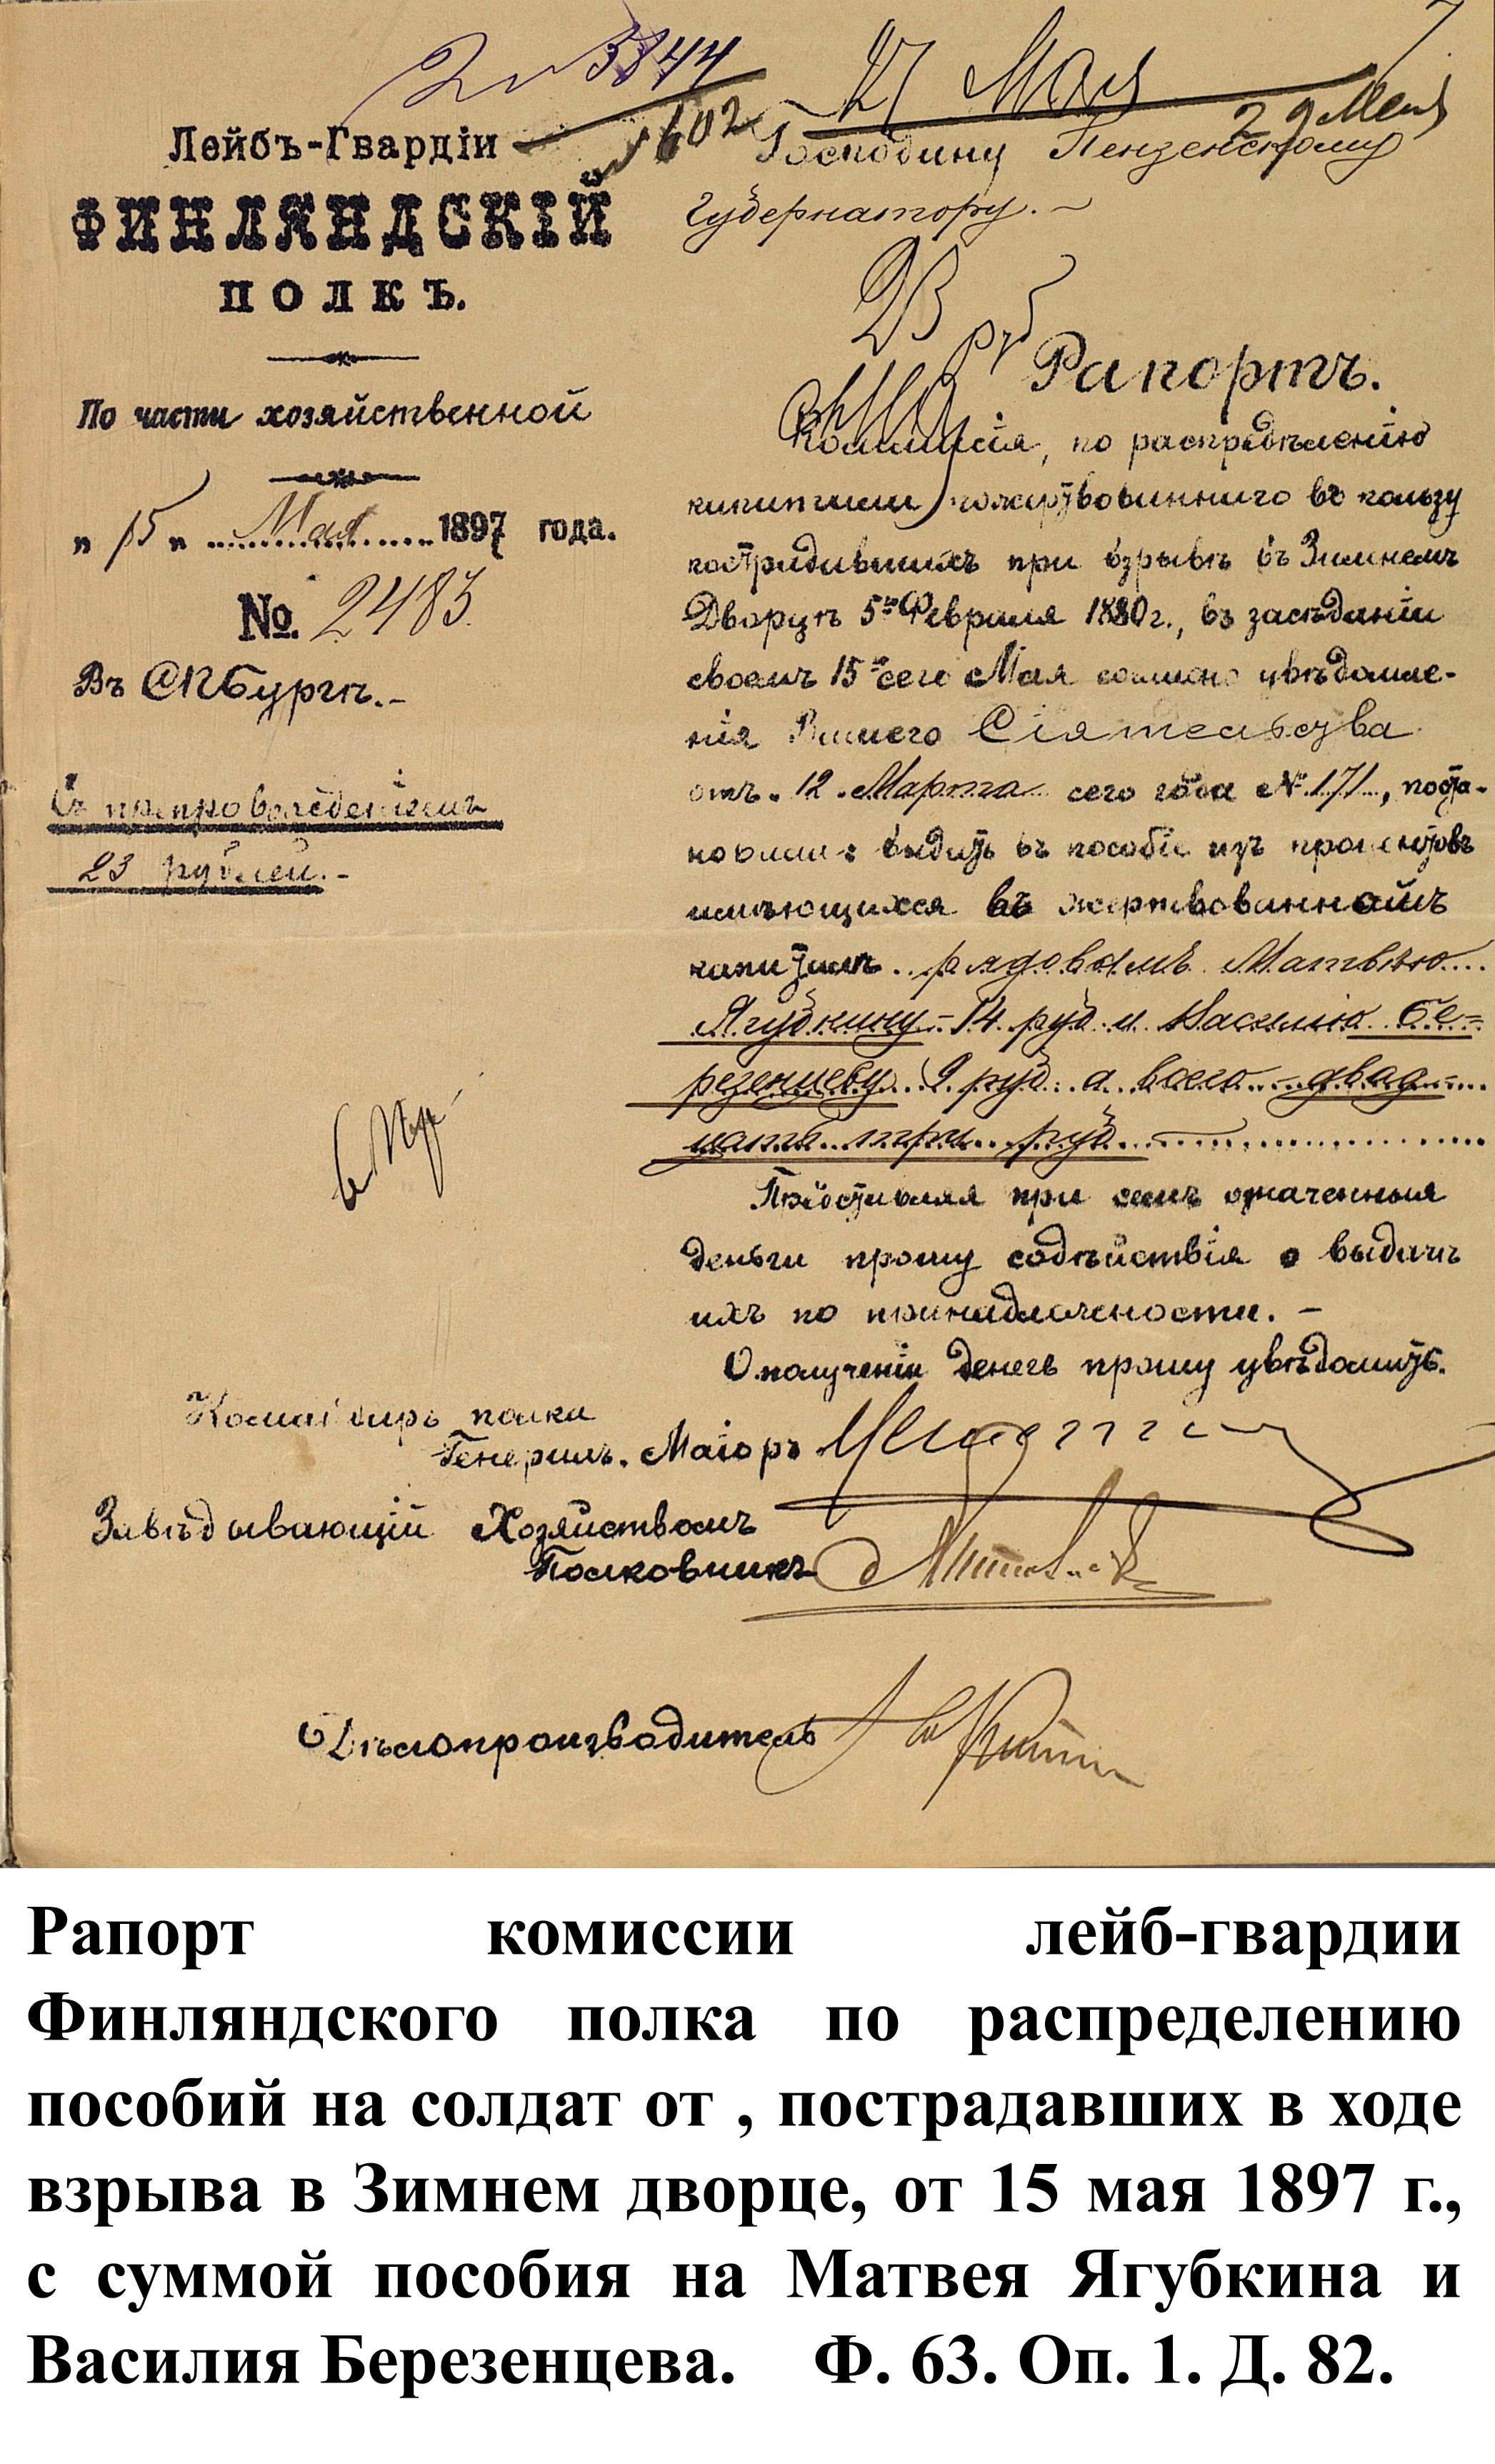 № 3844
27 Мая
№ 1602
29 Мая
Лейбъ-Гвардіи
ФИНЛЯНДСКІЙ
ПОЛКЪ.
По части хозяйственной
„ 15 „ Мая 1897 года.
№. 2483
Въ СПбургѣ.-
Съ препровожденіемъ
23 рублей.-
Господину Пензенскому
Губернатору.-
23 руб
Рапортъ.
Коммисія, по распредѣленію
капитала пожертвованнаго въ пользу
пострадавшихъ при взрывѣ въ Зимнемъ
Дворцѣ 5го Февраля 1880 г., въ засѣданіи
своемъ 15го сего Мая согласно увѣдомле-
нія Вашего Сіятельства
отъ 12 Марта сего года № 171, поста-
новила: выдать въ пособіе изъ процентовъ
имѣющихся въ жертвованномъ
капиталѣ рядовымъ Матвѣю
Ягубкину - 14 руб и Василію Бе-
резенцеву 9 руб. а всего - двад-
цать три руб
Представляя при семъ означенныя
деньги прошу содѣйствія о выдачѣ
ихъ по принадлежности. -
О полученіи денегъ прошу увѣдомить.
Командиръ полка
Генералъ-Маіоръ
Завѣдывающій Хозяйствомъ
Полковникъ
Дѣлопроизводитель
Рапорт комиссии лейб-гвардии
Финляндского полка по распределению
пособий на солдат от , пострадавших в ходе
взрыва в Зимнем дворце, от 15 мая 1897 г.,
с суммой пособия на Матвея Ягубкина и
Василия Березенцева. Ф. 63. Оп. 1. Д. 82.